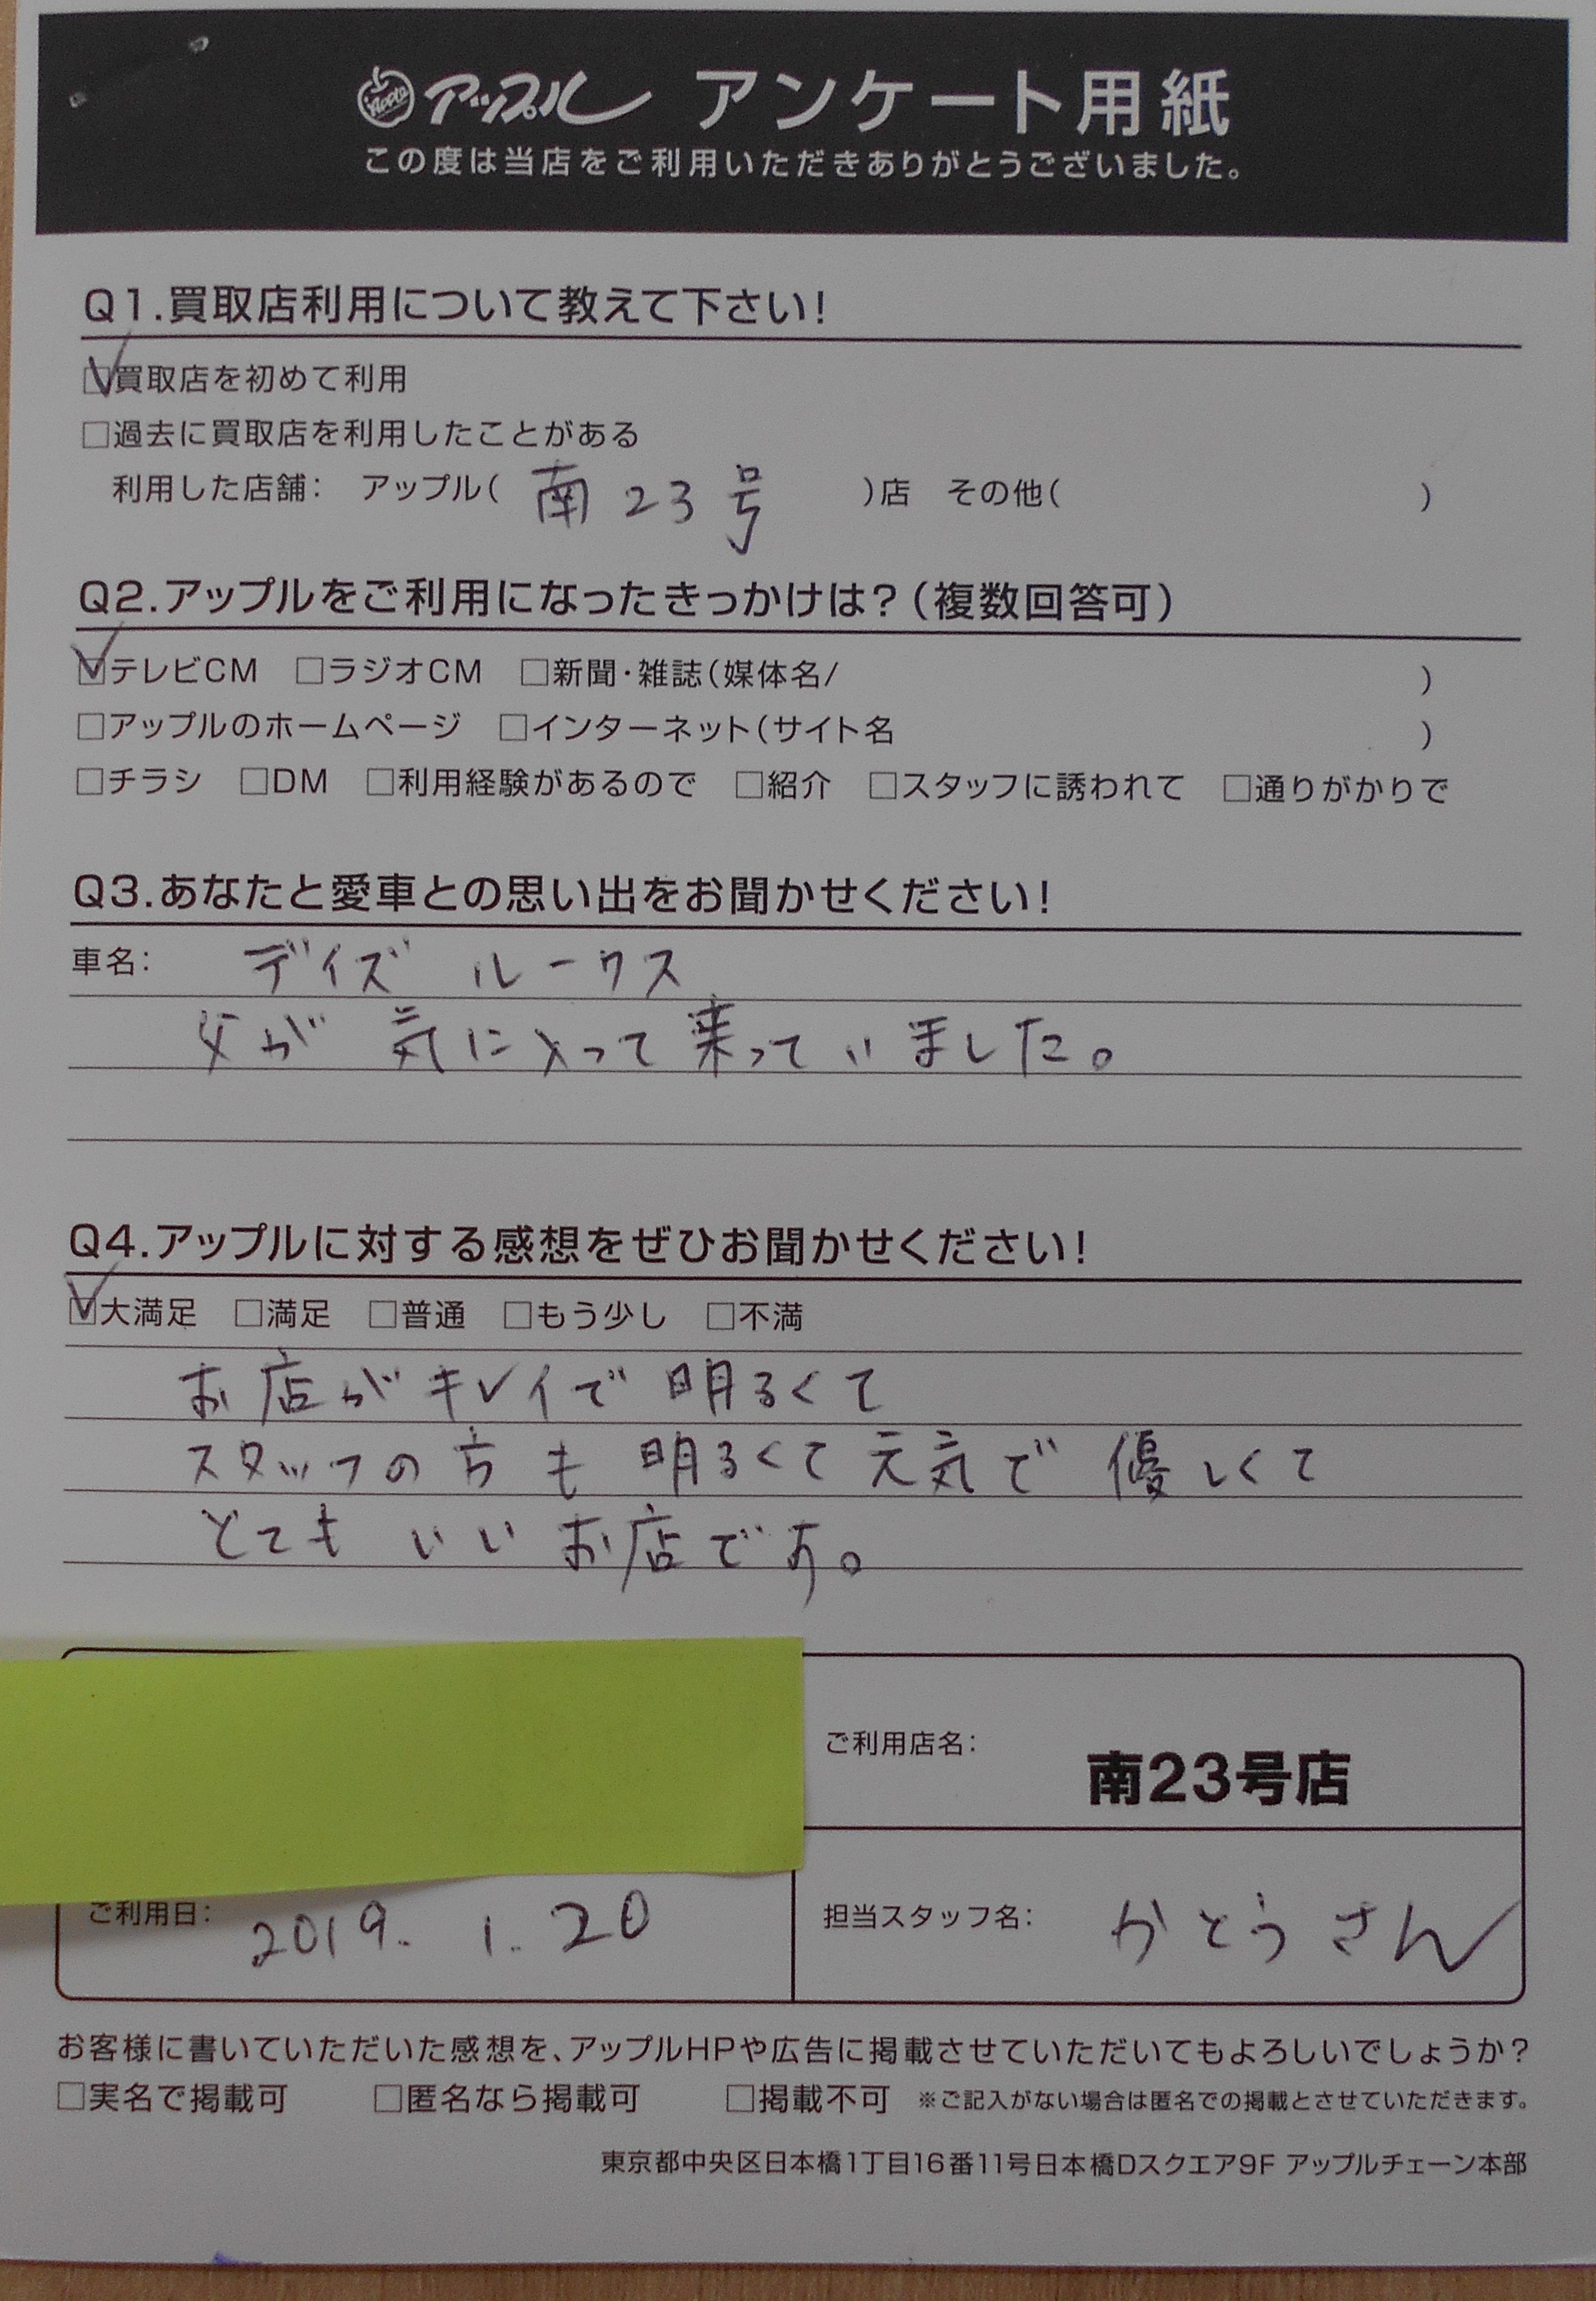 Apple アップル アンケート用紙
この度は当店をご利用いただきありがとうございました。
Q1.買取店利用について教えて下さい!
☑買取店を初めて利用
□過去に買取店を利用したことがある
利用した店舗: アップル( 南23号 )店 その他( )
Q2.アップルをご利用になったきっかけは?(複数回答可)
☑テレビCM □ラジオCM □新聞・雑誌(媒体名/ )
□アップルのホームページ □インターネット(サイト名 )
□チラシ □DM □利用経験があるので □紹介 □スタッフに誘われて □通りがかりで
Q3.あなたと愛車との思い出をお聞かせください!
車名: デイズ ルークス
父が 気に入って乗っていました。
Q4.アップルに対する感想をぜひお聞かせください!
☑大満足 □満足 □普通 □もう少し □不満
お店がキレイで 明るくて
スタッフの方も 明るくて元気で 優しくて
とても いいお店です。
ご利用店名: 南23号店
ご利用日: 2019. 1. 20
担当スタッフ名: かとうさん
お客様に書いていただいた感想を、アップルHPや広告に掲載させていただいてもよろしいでしょうか?
□実名で掲載可 □匿名なら掲載可 □掲載不可 ※ご記入がない場合は匿名での掲載とさせていただきます。
東京都中央区日本橋1丁目16番11号日本橋Dスクエア9F アップルチェーン本部